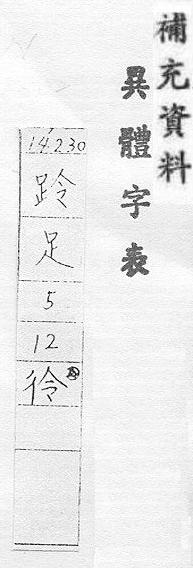 補充資料
異體字表
14.230
跉
足
5
12
彾